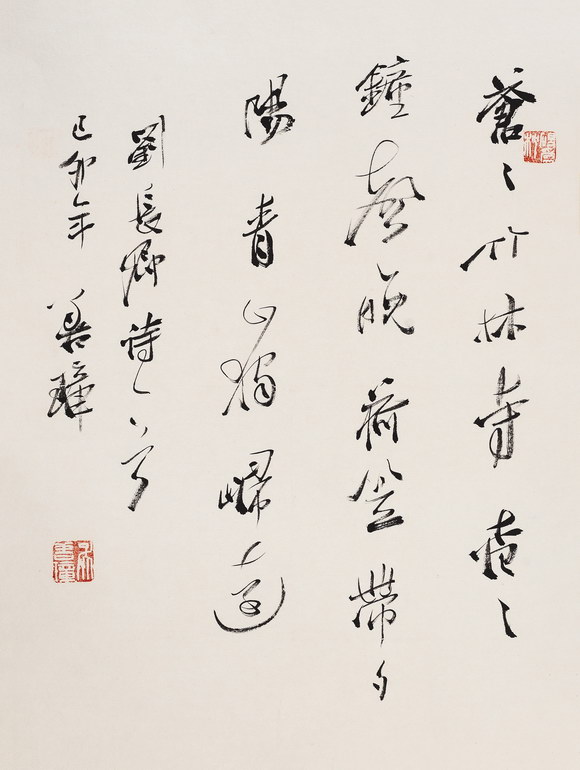 蒼々竹林寺杳々
鐘聲晚荷笠帶夕
陽青山獨歸遠
劉長卿詩一首
己卯年
善